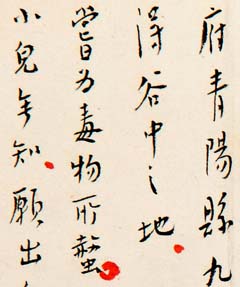 府青陽縣九
得谷中之地
嘗為毒物所螫
小兒無知願出